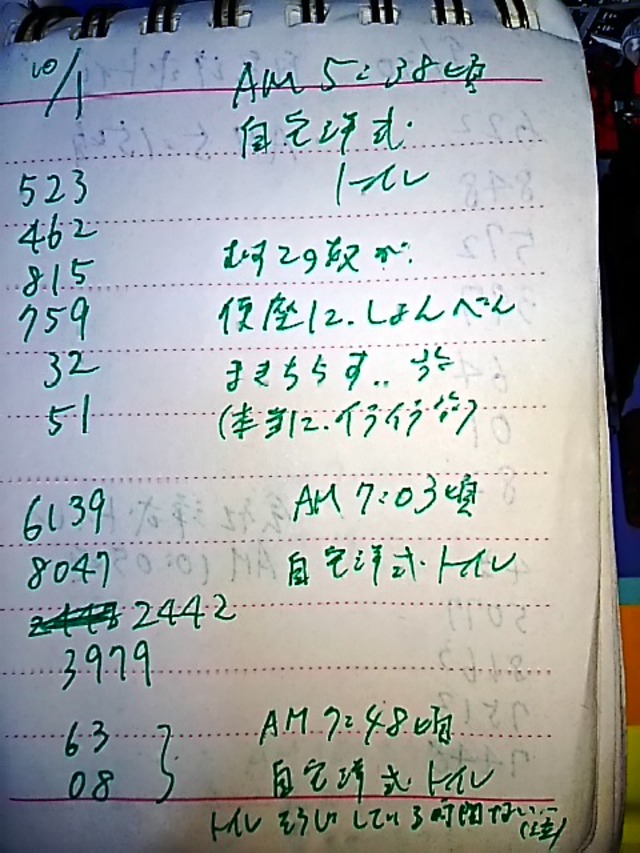 10/1 AM 5:38頃
自宅洋式
523 トイレ
462
815 むすこの奴が、
759 便座に、しょんべん
32 まきちらす、、
51 (本当に、イライラ
6139 AM 7:03頃
8047 自宅洋式トイレ
2442
3979
63 AM 7:48頃
08 自宅洋式トイレ
トイレそうじしている時間ない、、